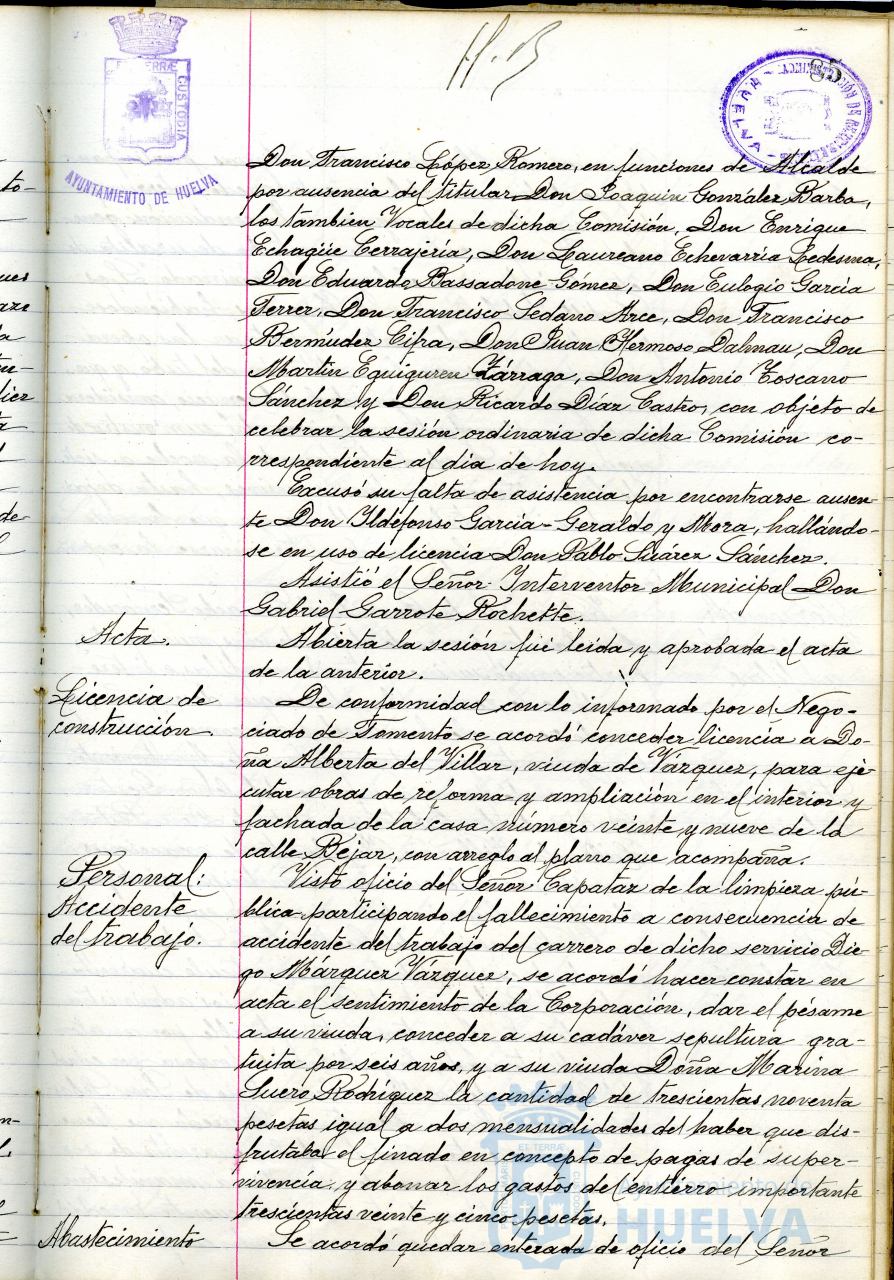 H. B
85
ET TERRÆ
CUSTODIA
AYUNTAMIENTO DE HUELVA
Don Francisco López Romero, en funciones de Alcalde
por ausencia del titular Don Joaquin González Barba,
los tambien Vocales de dicha Comisión, Don Enrique
Echagüe Cerrajería, Don Laureano Echevarria Ledesma,
Don Eduardo Bassadone Gómez, Don Eulogio Garcia
Ferrer, Don Francisco Sedano Arce, Don Francisco
Bermúdez Cifra, Don Juan Hermoso Dalmau, Don
Martin Eguiguren Zárraga, Don Antonio Toscano
Sánchez y Don Ricardo Díaz Castro, con objeto de
celebrar la sesión ordinaria de dicha Comisión co-
rrespondiente al dia de hoy.
Excusó su falta de asistencia por encontrarse ausen-
te Don Ildefonso Garcia-Geraldo y Mora, hallándo-
se en uso de licencia Don Pablo Suárez Sánchez.
Asistió el Señor Interventor Municipal Don
Gabriel Garrote Rochette.
Acta.
Abierta la sesión fué leida y aprobada el acta
de la anterior.
Licencia de
construcción.
De conformidad con lo informado por el Nego-
ciado de Fomento se acordó conceder licencia a Do-
ña Alberta del Villar, viuda de Vázquez, para eje-
cutar obras de reforma y ampliación en el interior y
fachada de la casa número veinte y nueve de la
calle Béjar, con arreglo al plano que acompaña.
Personal:
Accidente
del trabajo.
Visto oficio del Señor Capataz de la limpieza pú-
blica participando el fallecimiento a consecuencia de
accidente del trabajo del carrero de dicho servicio Die-
go Márquez Vázquez, se acordó hacer constar en
acta el sentimiento de la Corporación, dar el pésame
a su viuda, conceder a su cadáver sepultura gra-
tuita por seis años, y a su viuda Doña Marina
Suero Rodríguez la cantidad de trescientas noventa
pesetas igual a dos mensualidades del haber que dis-
frutaba el finado en concepto de pagas de super-
vivencia y abonar los gastos del entierro importante
trescientas veinte y cinco pesetas.
Abastecimiento
Se acordó quedar enterada de oficio del Señor
Ayuntamiento de
HUELVA